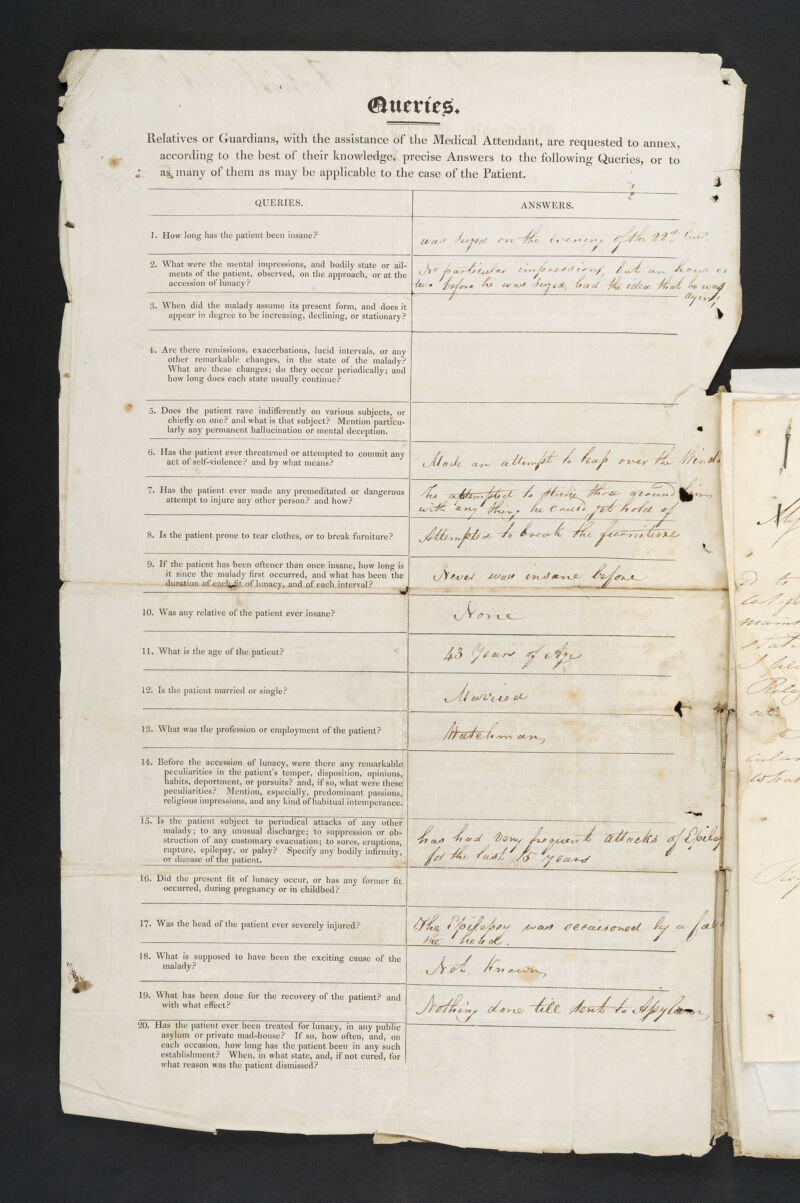 Queries.
Relatives or Guardians, with the assistance of the Medical Attendant, are requested to annex,
according to the best of their knowledge, precise Answers to the following Queries, or to
as many of them as may be applicable to the case of the Patient.
QUERIES.
ANSWERS.
1. How long has the patient been insane?
was seized on the evening of the 22d
2. What were the mental impressions, and bodily state or ail-
ments of the patient, observed, on the approach, or at the
accession of lunacy?
No particular impressions, but an hour or
two before he was seized, had the idea that he was
dying
3. When did the malady assume its present form, and does it
appear in degree to be increasing, declining, or stationary?
4. Are there remissions, exacerbations, lucid intervals, or any
other remarkable changes, in the state of the malady?
What are these changes; do they occur periodically; and
how long does each state usually continue?
5. Does the patient rave indifferently on various subjects, or
chiefly on one? and what is that subject? Mention particu-
larly any permanent hallucination or mental deception.
6. Has the patient ever threatened or attempted to commit any
act of self-violence? and by what means?
Made an attempt to leap over the Wind
7. Has the patient ever made any premeditated or dangerous
attempt to injure any other person? and how?
he attempted to strike those around him
with any thing he could get hold of
8. Is the patient prone to tear clothes, or to break furniture?
Attempted to break the furniture
9. If the patient has been oftener than once insane, how long is
it since the malady first occurred, and what has been the
duration of each fit of lunacy, and of each interval?
Never was insane before
10. Was any relative of the patient ever insane?
None
11. What is the age of the patient?
43 Years of Age
12. Is the patient married or single?
Married
13. What was the profession or employment of the patient?
Watchman
14. Before the accession of lunacy, were there any remarkable
peculiarities in the patient's temper, disposition, opinions,
habits, deportment, or pursuits? and, if so, what were these
peculiarities? Mention, especially, predominant passions,
religious impressions, and any kind of habitual intemperance.
15. Is the patient subject to periodical attacks of any other
malady; to any unusual discharge; to suppression or ob-
struction of any customary evacuation; to sores, eruptions,
rupture, epilepsy, or palsy? Specify any bodily infirmity,
or disease of the patient.
has had very frequent attacks of Epilep
for the last 15 years
16. Did the present fit of lunacy occur, or has any former fit
occurred, during pregnancy or in childbed?
17. Was the head of the patient ever severely injured?
The Epilepsy was occaisoned by a fa
the head.
18. What is supposed to have been the exciting cause of the
malady?
Not Known
19. What has been done for the recovery of the patient? and
with what effect?
Nothing done till sent to Asylum
20. Has the patient ever been treated for lunacy, in any public
asylum or private mad-house? If so, how often, and, on
each occasion, how long has the patient been in any such
establishment? When, in what state, and, if not cured, for
what reason was the patient dismissed?